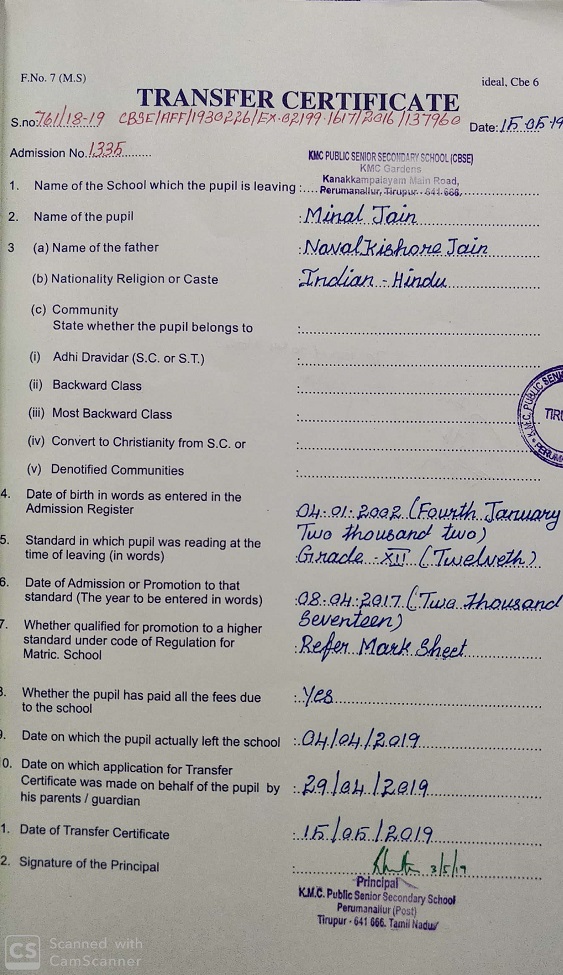 F.No. 7 (M.S)
ideal, Cbe 6
TRANSFER CERTIFICATE
S.no. 761/18-19 CBSE/AFF/1930226/EX-02199-1617/2016/137960 Date: 15.05.19
Admission No. 1335
KMC PUBLIC SENIOR SECONDARY SCHOOL (CBSE)
KMC Gardens
Kanakkampalayam Main Road,
1. Name of the School which the pupil is leaving : Perumanallur, Tirupur - 641 666.
2. Name of the pupil : Minal Jain
3 (a) Name of the father : Naval Kishore Jain
(b) Nationality Religion or Caste : Indian - Hindu
(c) Community
State whether the pupil belongs to :
(i) Adhi Dravidar (S.C. or S.T.) :
(ii) Backward Class :
(iii) Most Backward Class :
(iv) Convert to Christianity from S.C. or :
(v) Denotified Communities :
K.M.C. PUBLIC SENIO
TIRU
PERUMA
4. Date of birth in words as entered in the
Admission Register : 04.01.2002 (Fourth January
Two thousand two)
5. Standard in which pupil was reading at the
time of leaving (in words) : Grade - XII (Twelveth)
6. Date of Admission or Promotion to that
standard (The year to be entered in words) : 08.04.2017 (Two Thousand
Seventeen)
7. Whether qualified for promotion to a higher
standard under code of Regulation for
Matric. School : Refer Mark Sheet
8. Whether the pupil has paid all the fees due
to the school : Yes
9. Date on which the pupil actually left the school : 04/04/2019
0. Date on which application for Transfer
Certificate was made on behalf of the pupil by
his parents / guardian : 29/04/2019
1. Date of Transfer Certificate : 15/05/2019
2. Signature of the Principal :
Principal
K.M.C. Public Senior Secondary School
Perumanallur (Post)
Tirupur - 641 666. Tamil Nadu
CS Scanned with
CamScanner